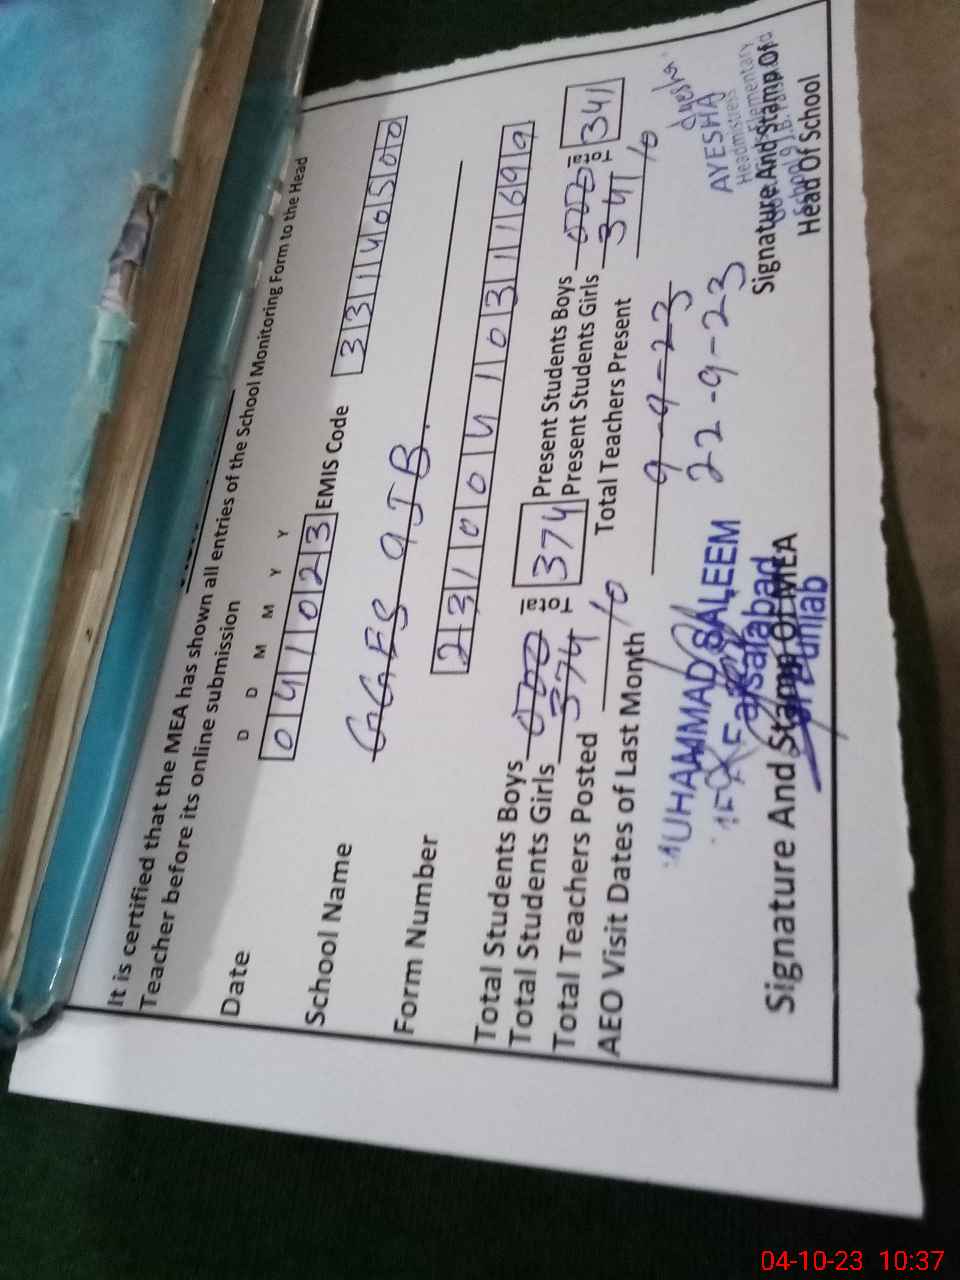 It is certified that the MEA has shown all entries of the School Monitoring Form to the Head
Teacher before its online submission
D D M M Y Y
Date 04/10/23 EMIS Code 33140500
School Name GGES 9JB.
Form Number 23100410311699
Total Students Boys 000 Total 374 Present Students Boys 000 Total 341
Total Students Girls 374 Present Students Girls 341
Total Teachers Posted 10 Total Teachers Present 10
AEO Visit Dates of Last Month 9-9-23
22-9-23
MUHAMMAD SALEEM
Faisalabad
Punjab
Ayesha
AYESHA
Headmistress
Elementary
School 9 J.B.
Signature And Stamp Of MEA
Signature And Stamp Of
Head Of School
04-10-23 10:37